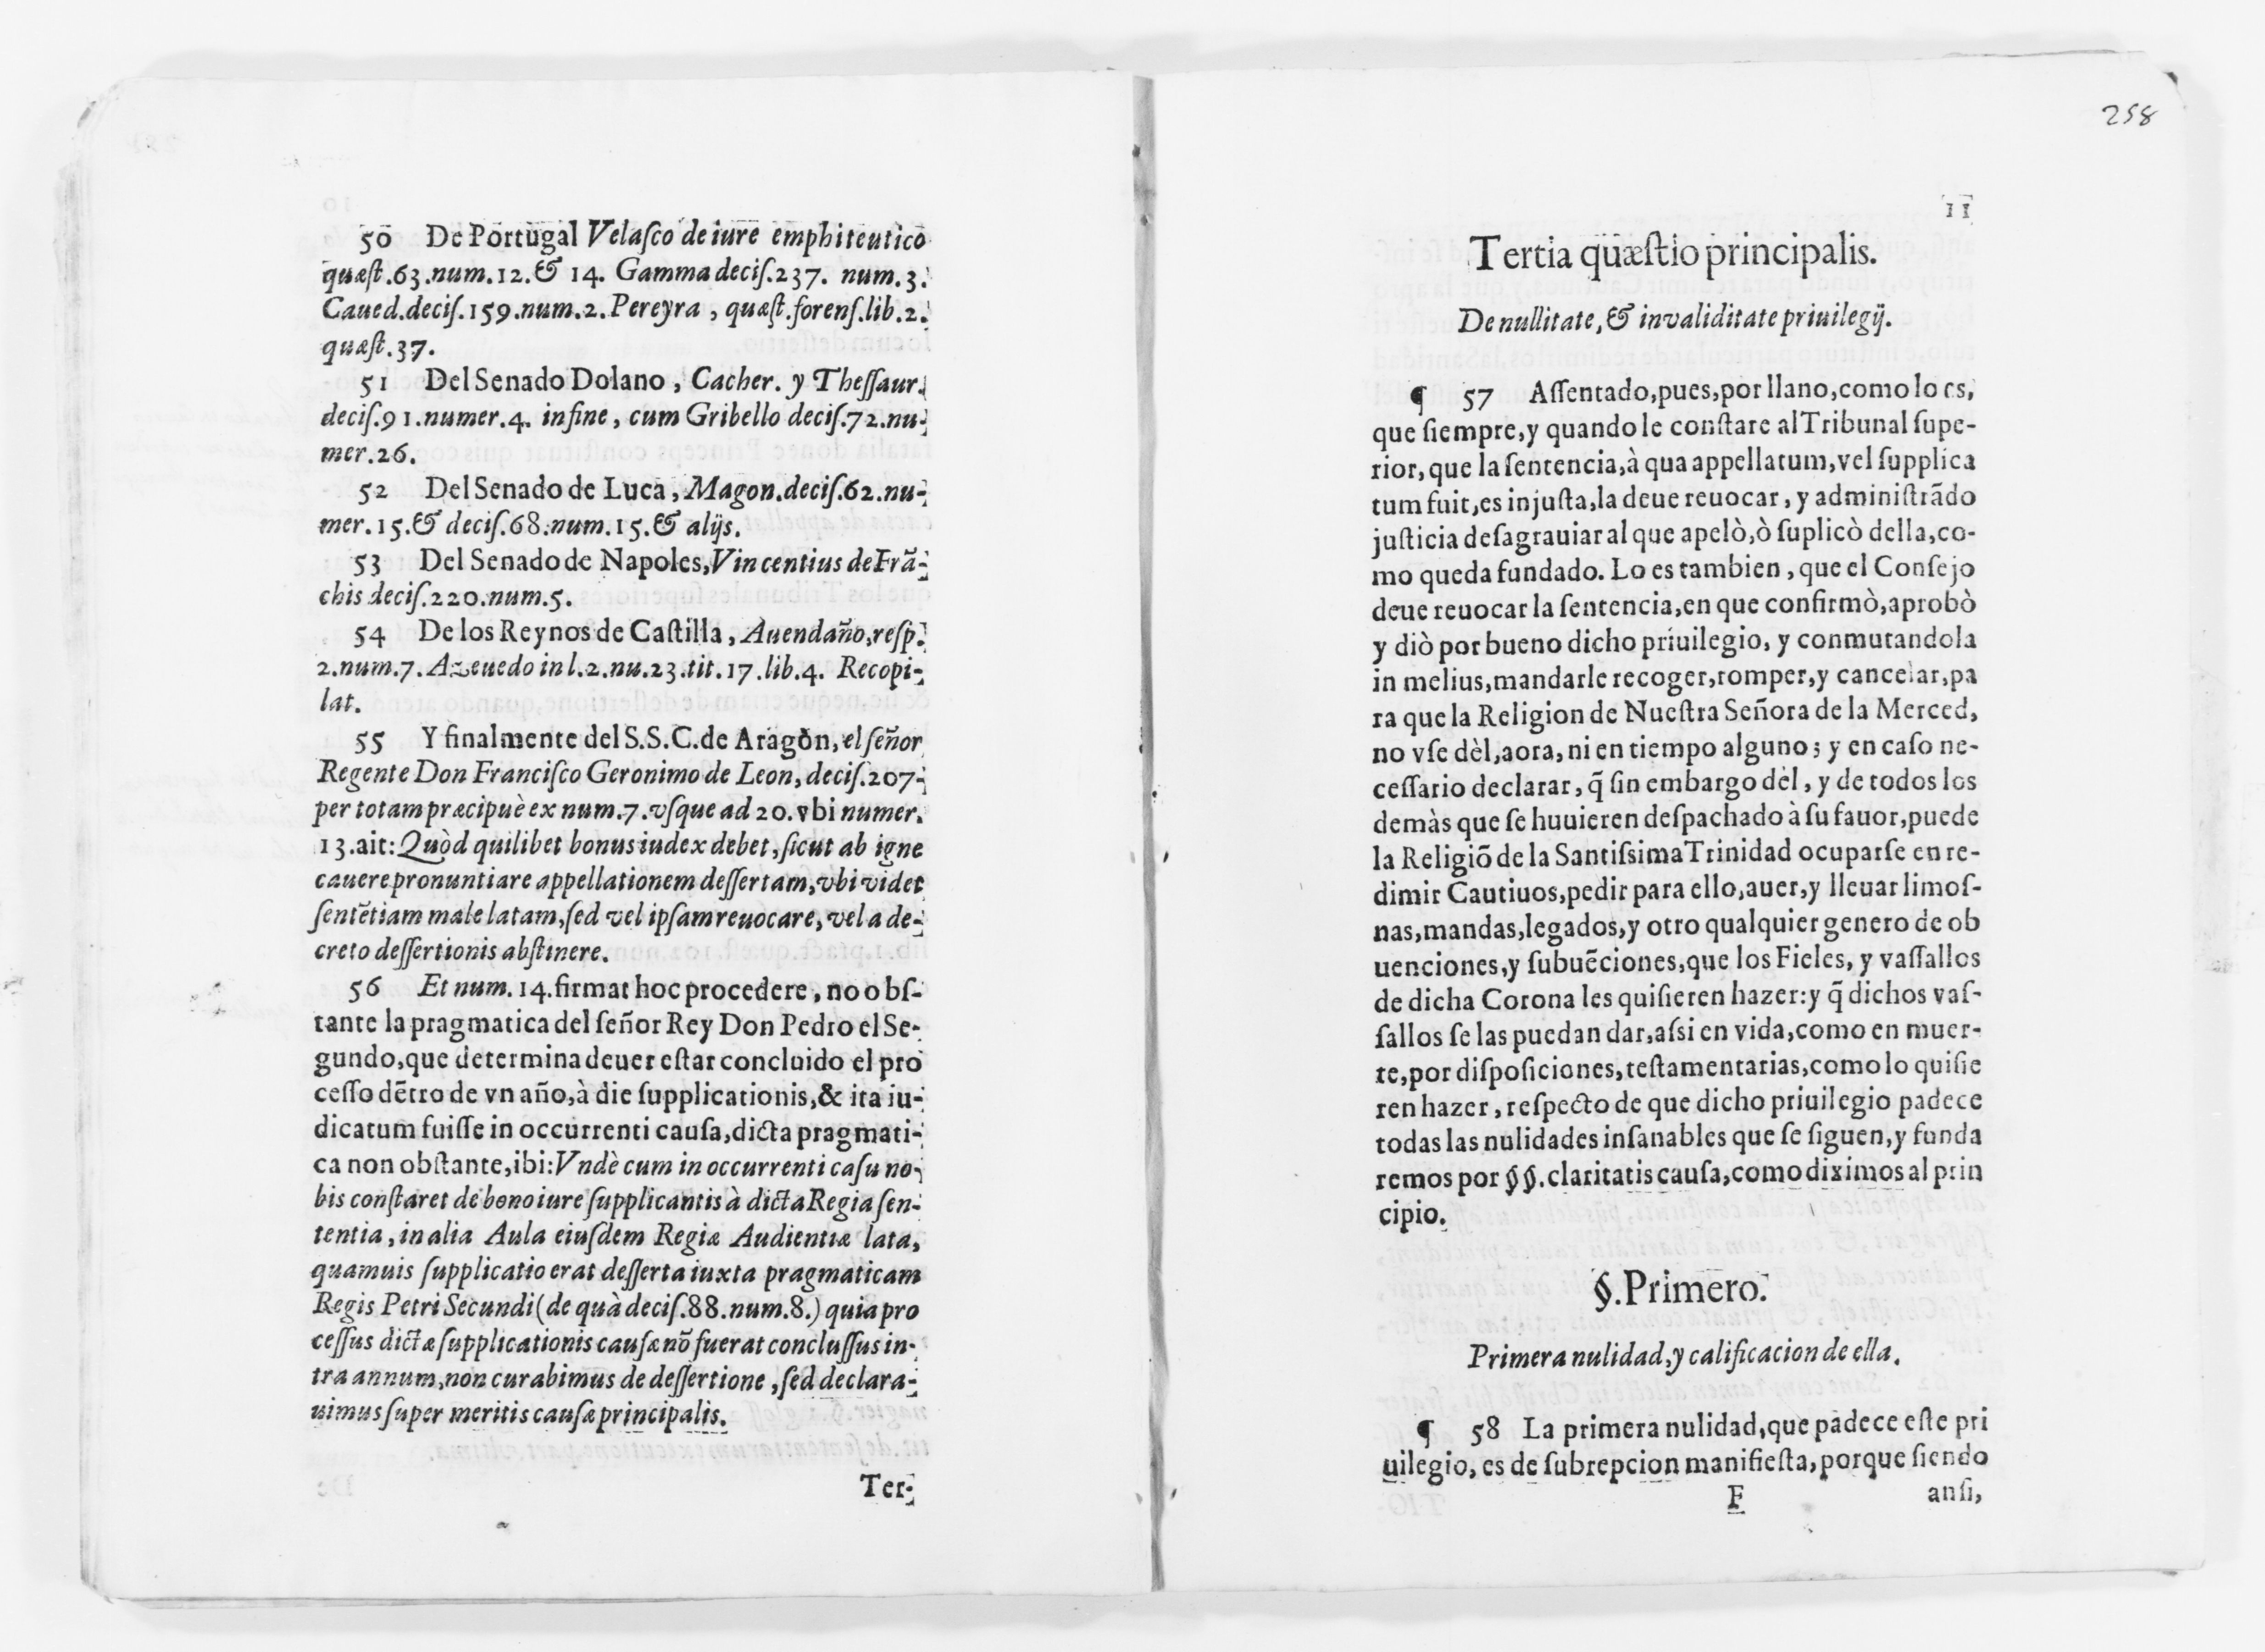 50 De Portugal Velaſco de iure emphiteutico
quæſt.63.num.12.& 14. Gamma deciſ.237. num.3.
Caued.deciſ.159.num.2. Pereyra, quæſt.forenſ.lib.2.
quæſt.37.
51 Del Senado Dolano, Cacher. y Theſſaur.
deciſ.91.numer.4. in fine, cum Gribello deciſ.72.nu-
mer.26.
52 Del Senado de Luca, Magon.deciſ.62.nu-
mer.15.& deciſ.68.num.15.& alijs.
53 Del Senado de Napoles, Vincentius de Frã-
chis deciſ.220.num.5.
54 De los Reynos de Caſtilla, Auendaño, reſp.
2.num.7. Azeuedo in l.2.nu.23.tit.17.lib.4. Recopi-
lat.
55 Y finalmente del S.S.C.de Aragòn, el ſeñor
Regente Don Franciſco Geronimo de Leon, deciſ.207.
per totam præcipuè ex num.7.vſque ad 20. vbi numer.
13.ait: Quòd quilibet bonus iudex debet, ſicut ab igne
cauere pronuntiare appellationem deſſertam, vbi videt
ſentẽtiam male latam, ſed vel ipſam reuocare, vel a de-
creto deſſertionis abſtinere.
56 Et num.14.firmat hoc procedere, no obſ-
tante la pragmatica del ſeñor Rey Don Pedro el Se-
gundo, que determina deuer eſtar concluido el pro
ceſſo dẽtro de vn año, à die ſupplicationis, & ita iu-
dicatum fuiſſe in occurrenti cauſa, dicta pragmati-
ca non obſtante, ibi: Vndè cum in occurrenti caſu no-
bis conſtaret de bono iure ſupplicantis à dicta Regia ſen-
tentia, in alia Aula eiuſdem Regiæ Audientiæ lata,
quamuis ſupplicatio erat deſſerta iuxta pragmaticam
Regis Petri Secundi (de quà deciſ.88.num.8.) quia pro
ceſſus dictæ ſupplicationis cauſæ nõ fuerat concluſſus in-
tra annum, non curabimus de deſſertione, ſed declara-
uimus ſuper meritis cauſæ principalis.
Ter-
258
11
Tertia quæſtio principalis.
De nullitate, & invaliditate priuilegij.
¶ 57 Aſſentado, pues, por llano, como lo es,
que ſiempre, y quando le conſtare al Tribunal ſupe-
rior, que la ſentencia, à qua appellatum, vel ſupplica
tum fuit, es injuſta, la deue reuocar, y adminiſtrãdo
juſticia deſagrauiar al que apelò, ò ſuplicò della, co-
mo queda fundado. Lo es tambien, que el Conſejo
deue reuocar la ſentencia, en que confirmò, aprobò
y diò por bueno dicho priuilegio, y conmutandola
in melius, mandarle recoger, romper, y cancelar, pa
ra que la Religion de Nueſtra Señora de la Merced,
no vſe dèl, aora, ni en tiempo alguno; y en caſo ne-
ceſſario declarar, q̃ ſin embargo dèl, y de todos los
demàs que ſe huuieren deſpachado à ſu fauor, puede
la Religiõ de la Santiſsima Trinidad ocuparſe en re-
dimir Cautiuos, pedir para ello, auer, y lleuar limoſ-
nas, mandas, legados, y otro qualquier genero de ob
uenciones, y ſubuẽciones, que los Fieles, y vaſſallos
de dicha Corona les quiſieren hazer: y q̃ dichos vaſ-
ſallos ſe las puedan dar, aſsi en vida, como en muer-
te, por diſpoſiciones, teſtamentarias, como lo quiſie
ren hazer, reſpecto de que dicho priuilegio padece
todas las nulidades inſanables que ſe ſiguen, y funda
remos por §§. claritatis cauſa, como diximos al prin
cipio.
§. Primero.
Primera nulidad, y calificacion de ella.
¶ 58 La primera nulidad, que padece eſte pri
uilegio, es de ſubrepcion manifieſta, porque ſiendo
F
anſi,